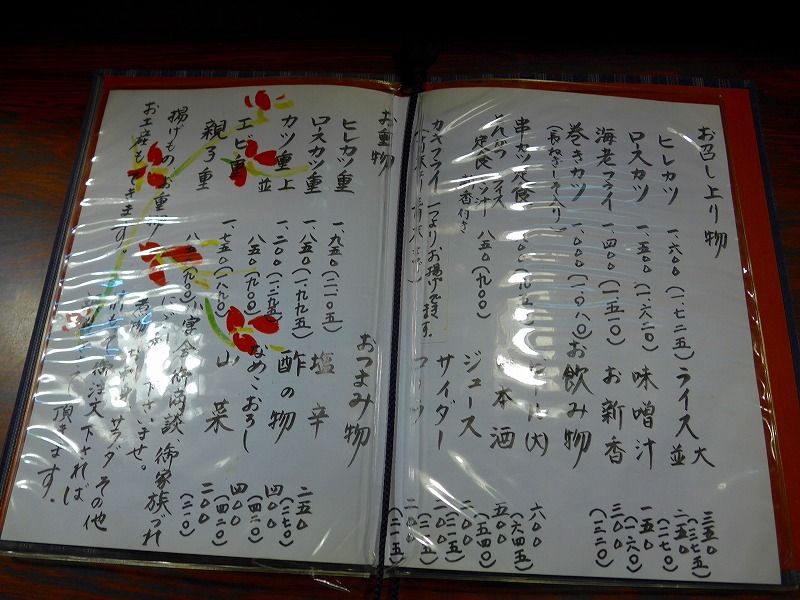 お召し上り物
ヒレカツ 一、六〇〇(一、七二五)
ロースカツ 一、五〇〇(一、六二〇)
海老フライ 一、四〇〇(一、五一〇)
巻きカツ 一、〇〇〇(一、〇八〇)
(長ねぎしそ入り)
串カツ定食
とんかつ定食 ライス 汁 新香付き 八五〇(九〇〇)
カキフライ 一つよりお揚げできます。
ライス 大 三五〇(三七五)
並 二五〇(二七〇)
味噌汁 一五〇(一六〇)
お新香 三〇〇(三二〇)
お飲み物
ビール(大) 六〇〇(六四五)
日本酒 五〇〇(五四〇)
ジュース 二〇〇(二一五)
サイダー 二〇〇(二一五)
お重物
ヒレカツ重 一、九五〇(二、一〇五)
ロースカツ重 一、八五〇(一、九九五)
カツ重 上 一、二〇〇(一、二九五)
並 八五〇(九〇〇)
エビ重 一、七五〇(一、八九〇)
親子重 八五〇(九〇〇)
おつまみ物
塩辛 二五〇(二七〇)
酢の物 四〇〇(四二〇)
なめこおろし 四〇〇(四二〇)
山菜 二〇〇(二一〇)
揚げもの お重
お土産もできます。
小宴会 御商談 御家族づれ
下さいませ。
サラダ その他
御注文下されば
頂きます。